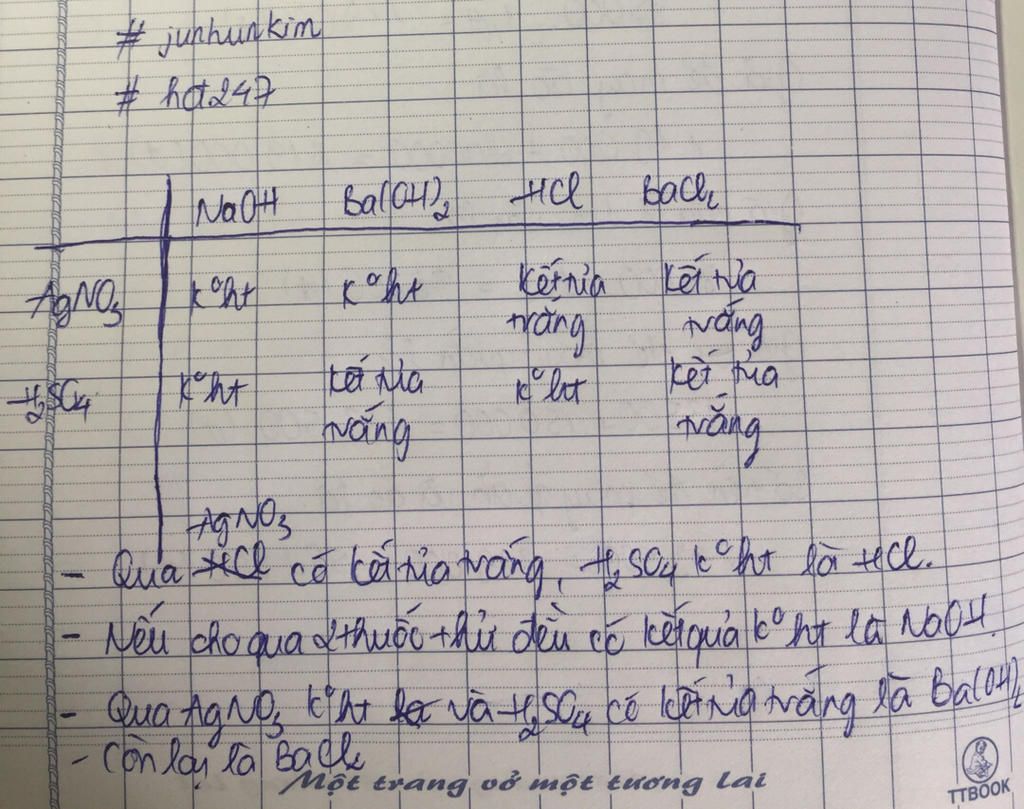 # junhunkim
# hot247
NaOH Ba(OH)2 HCl BaCl2
AgNO3 k°ht k°ht kết tủa trắng kết tủa trắng
H2SO4 k°ht kết tủa trắng k°ht kết tủa trắng
AgNO3
- Qua HCl có kết tủa trắng, H2SO4 k°ht là HCl.
- Nếu cho qua 2 thuốc thử đều có kết quả k°ht là NaOH.
- Qua AgNO3 k°ht là và H2SO4 có kết tủa trắng là Ba(OH)2
- Còn lại là BaCl2
Một trang vở một tương lai
TTBOOK